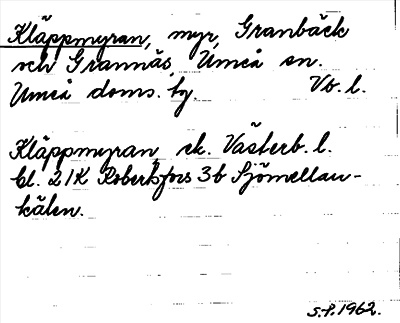 Kläppmyran, myr, Granbäck
och Grannäs, Umeå sn.
Umeå doms. by. Vb. l.
Kläppmyran, ek. Västerb. l.
bl. 21K Robertsfors 3b Sjömellan-
kälen.
S.P. 1962.